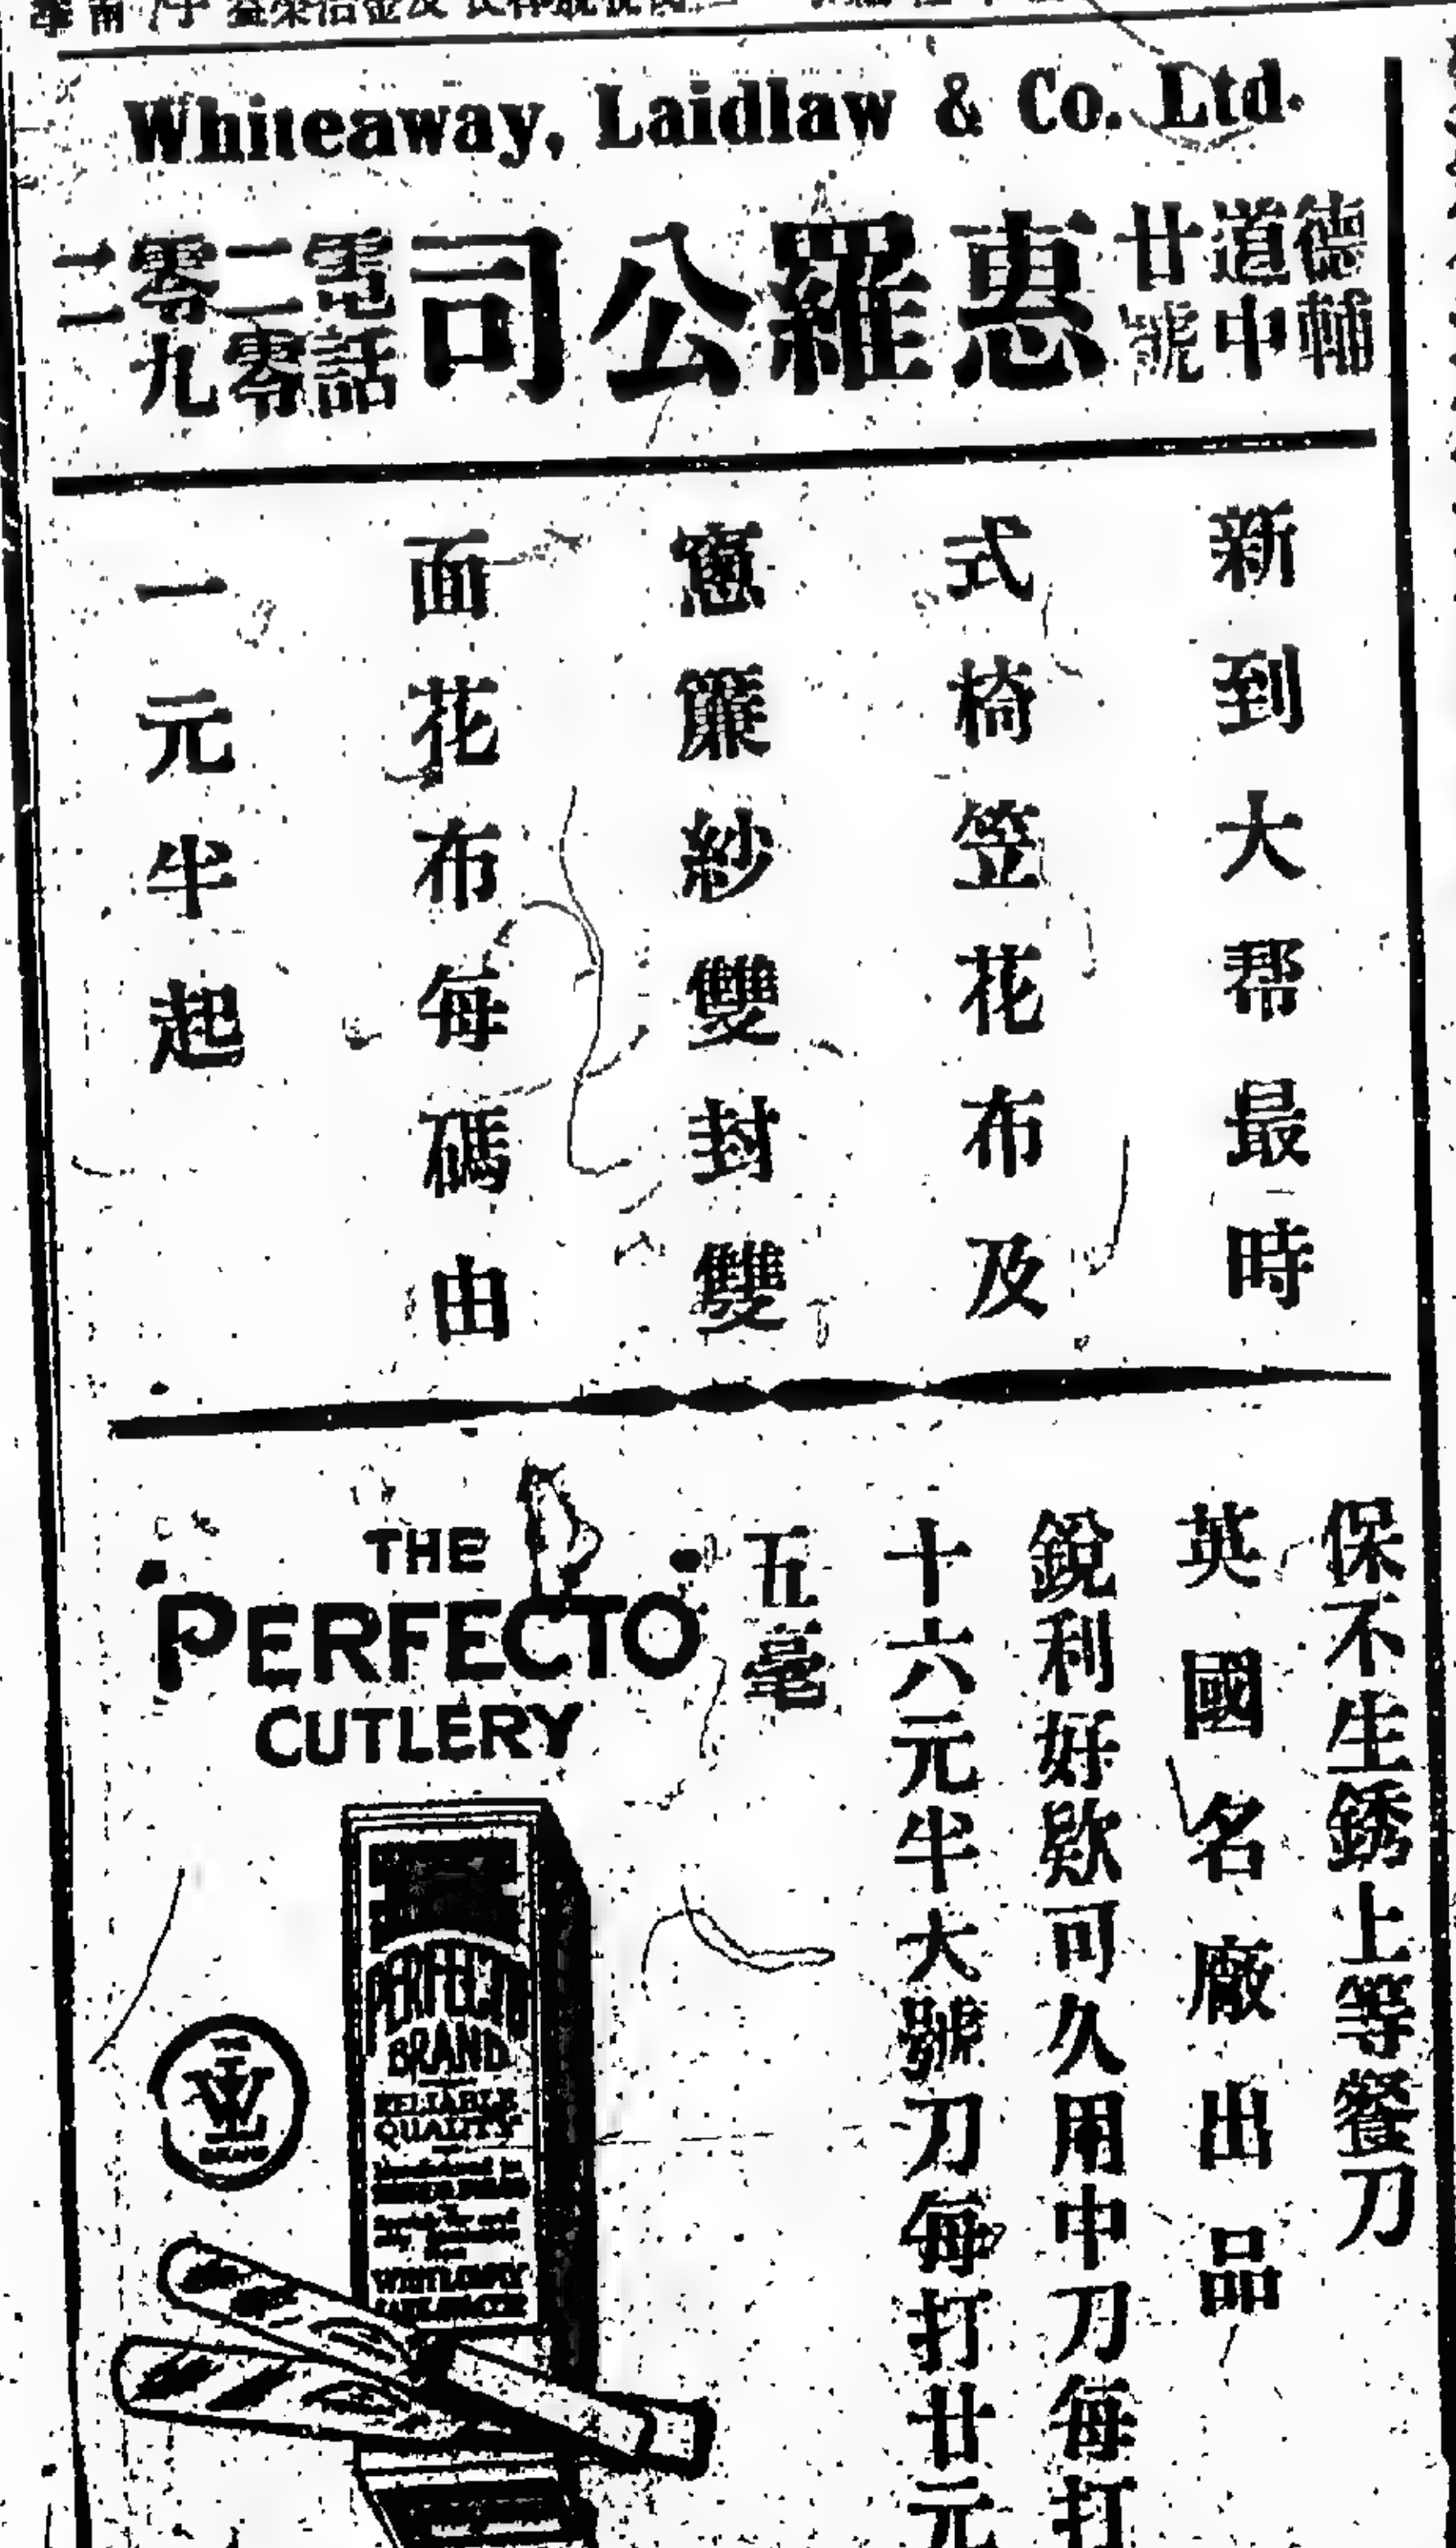 Whiteaway, Laidlaw & Co. Ltd.
德輔
道中
廿號
惠羅公司
電話
二零
零九
二二
新到大帮最時
式椅笠花布及
窻簾紗雙封雙
面花布每碼由
一元半起
保不生銹上等餐刀
英國名廠出品
銳利好歎可久用中刀每打
十六元半大號刀每打廿元
五毫
THE
PERFECTO
CUTLERY
PERFECTO
BRAND
RELIABLE
QUALITY